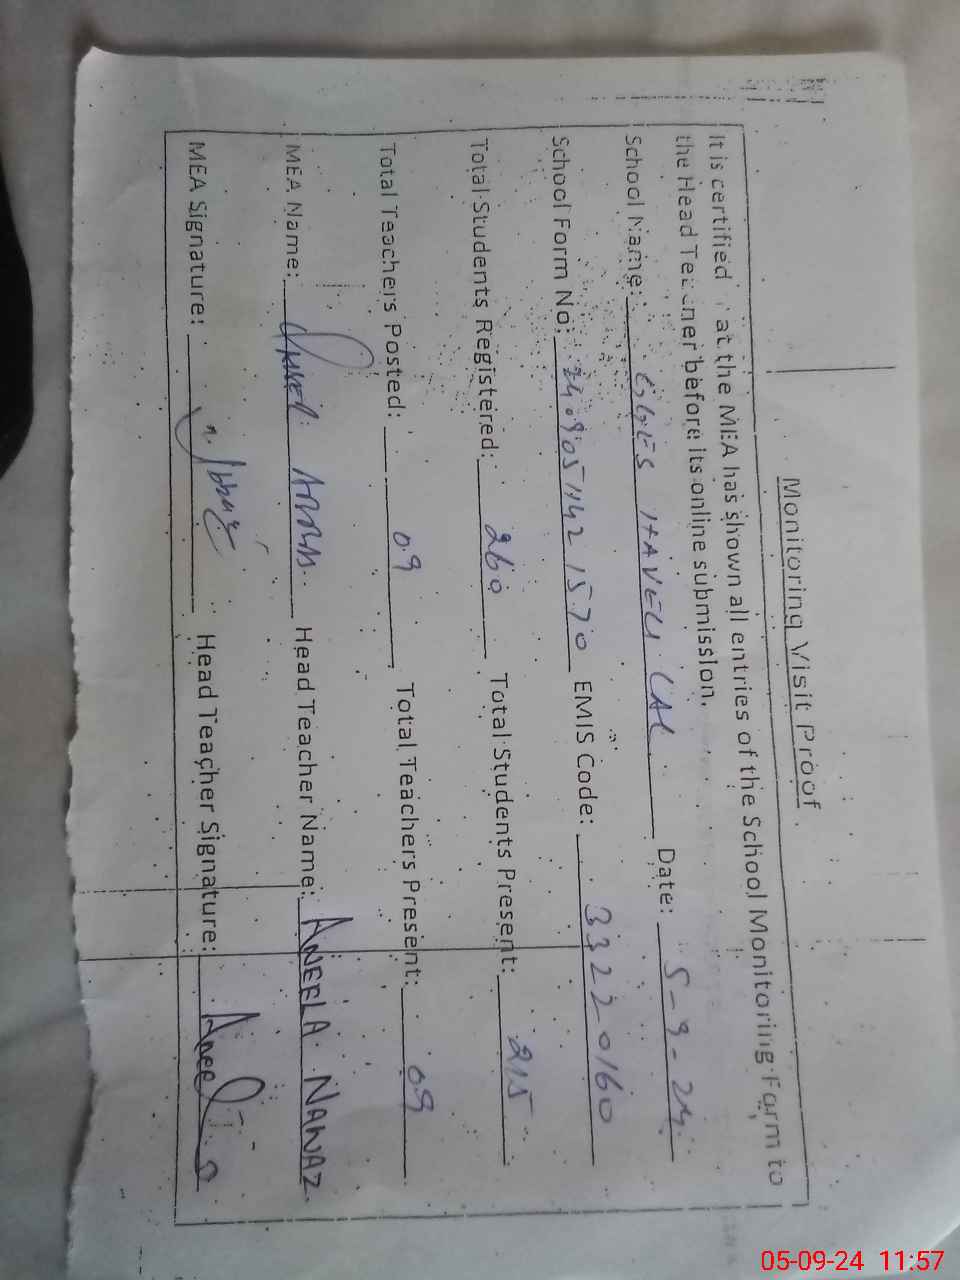 Monitoring Visit Proof
It is certified at the MEA has shown all entries of the School Monitoring Form to
the Head Teacher before its online submission.
School Name: GGES HAVELI LAL Date: 5-9-24
School Form No: EMIS Code: 33220160
Total Students Registered: 260 Total Students Present: 215
Total Teachers Posted: 09 Total Teachers Present: 09
MEA Name: Head Teacher Name: ANEELA NAWAZ
MEA Signature: Head Teacher Signature: Aneela
05-09-24 11:57